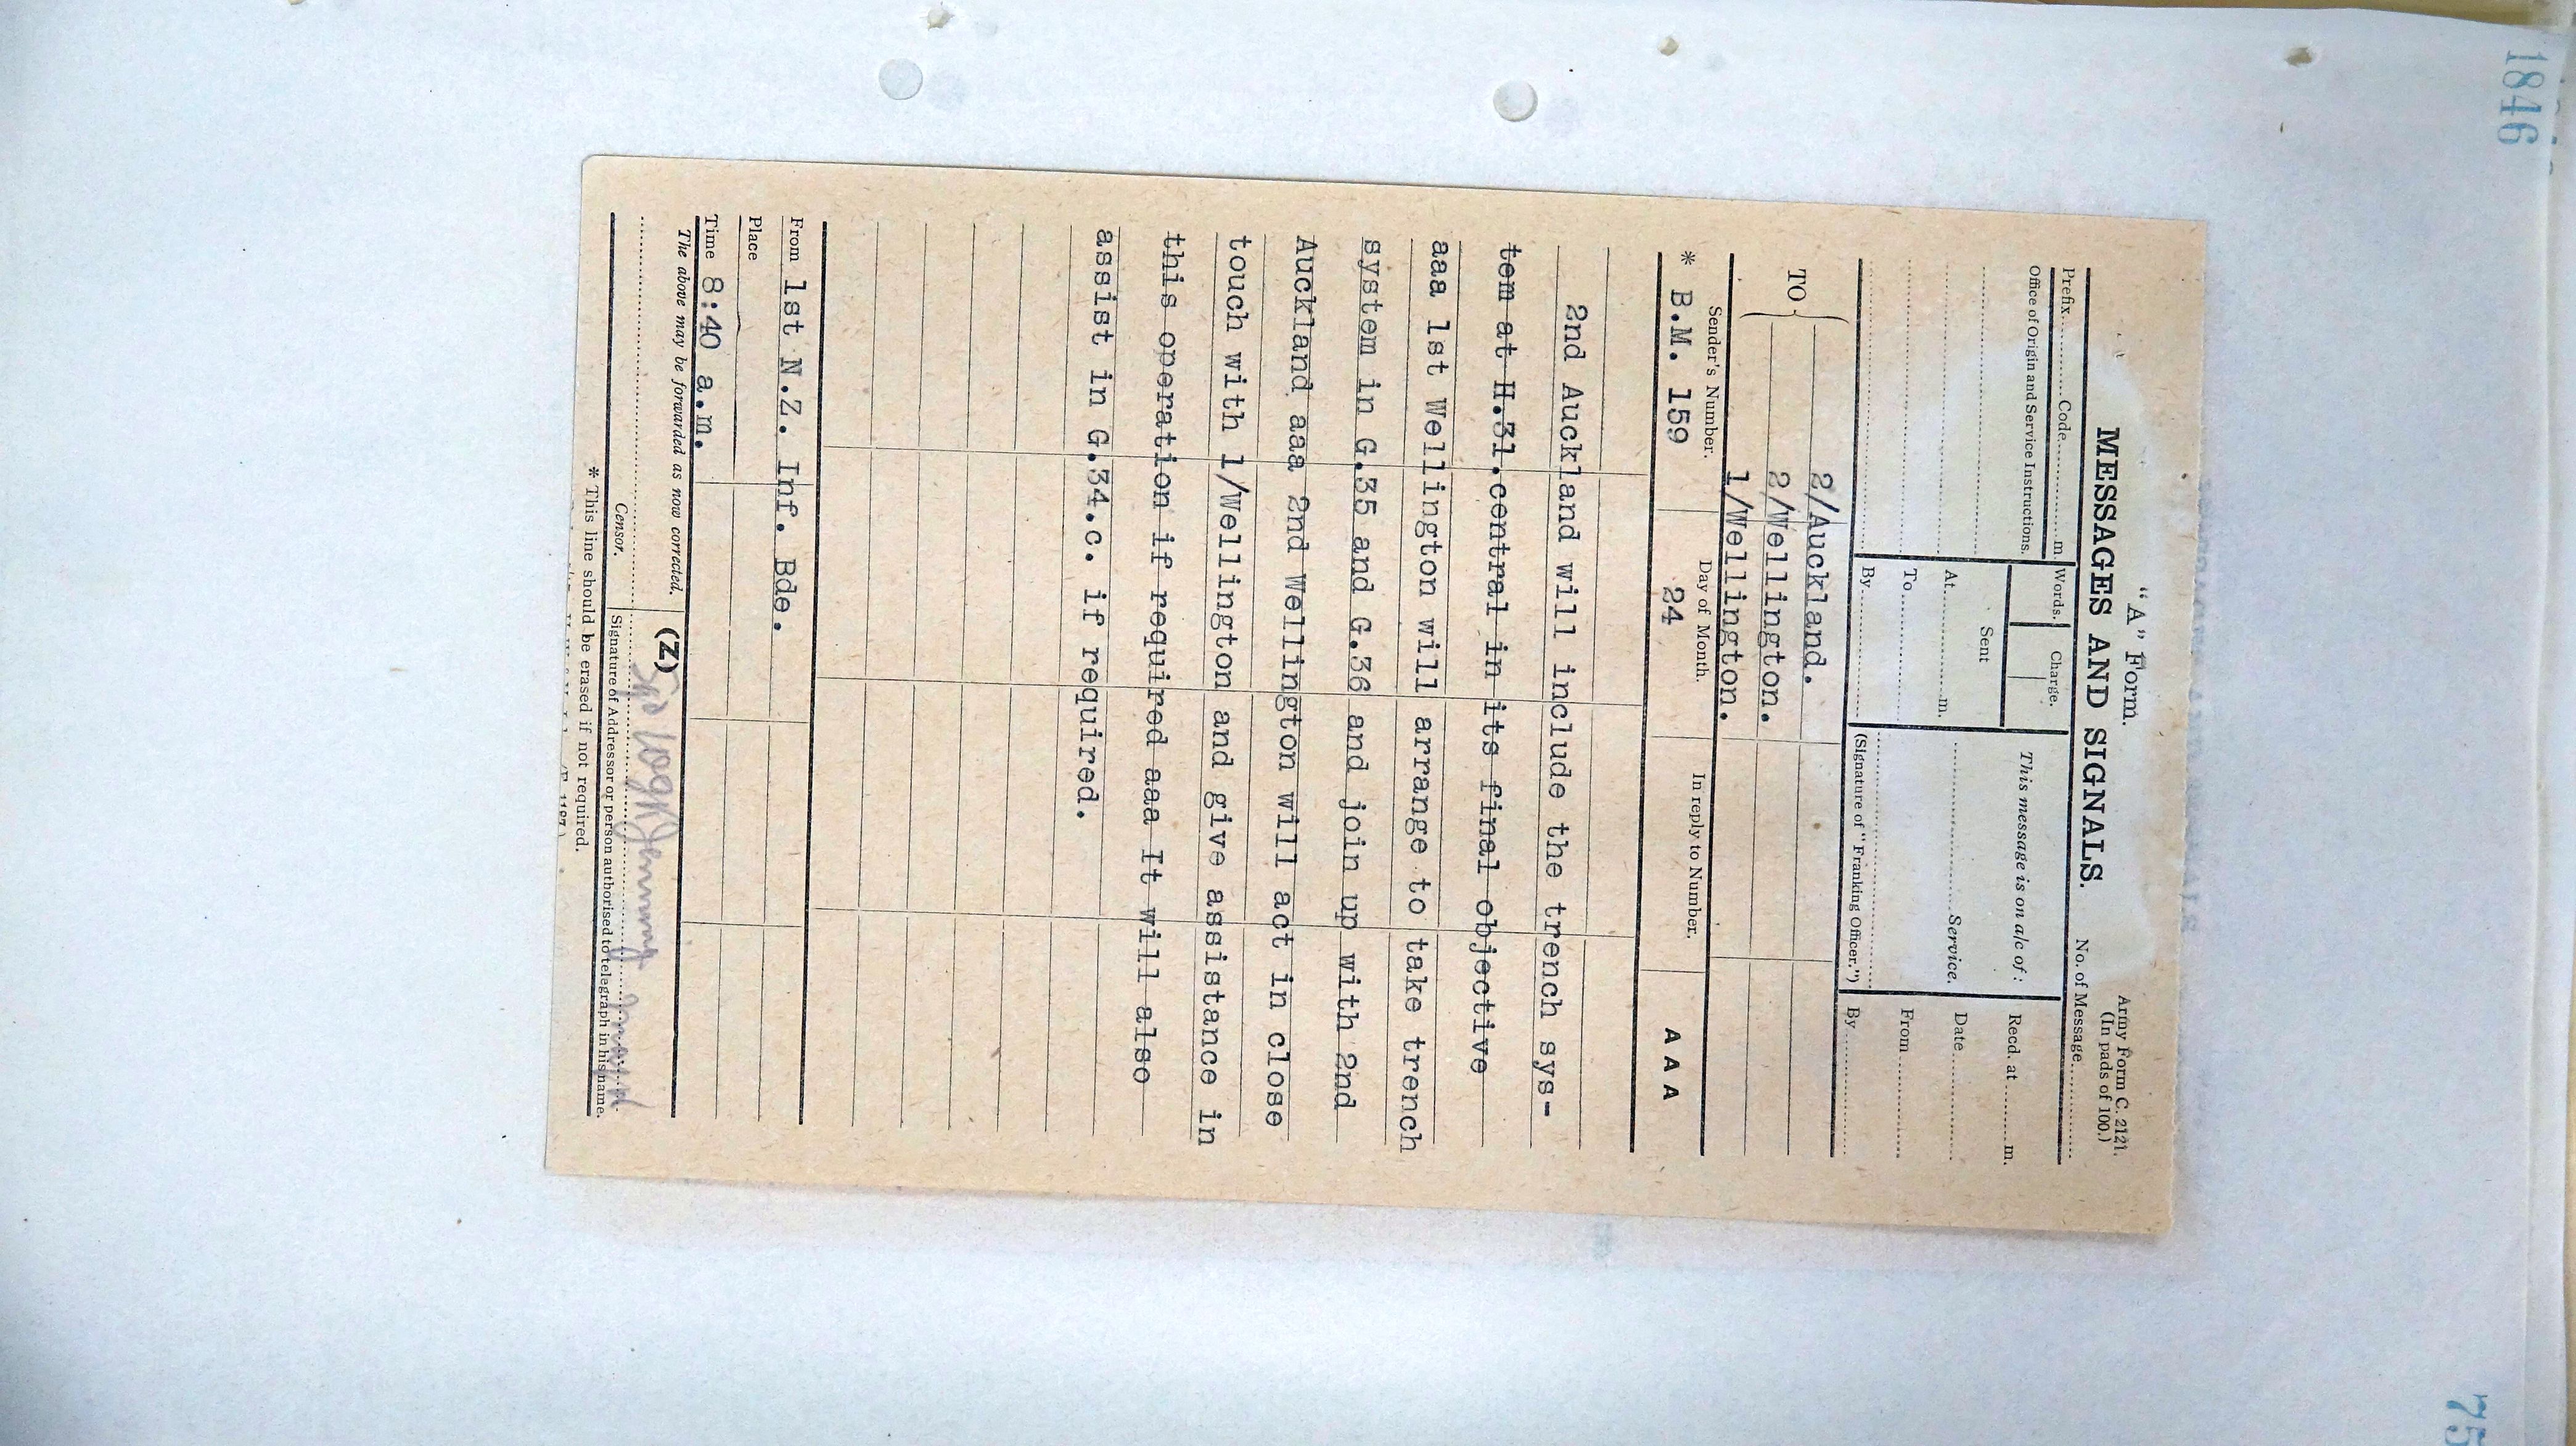 1846
"A" Form.
Army Form C. 2121.
(In pads of 100.)
MESSAGES AND SIGNALS.
No. of Message
Prefix Code m.
Words.
Charge.
This message is on a/c of:
Recd. at m.
Office of Origin and Service Instructions.
Sent
Date
At m.
Service.
From
To
By
(Signature of "Franking Officer.")
By
TO
2/Auckland.
2/Wellington.
1/Wellington.
Sender's Number.
Day of Month.
In reply to Number.
* B.M. 159
24
A A A
2nd Auckland will include the trench sys-
tem at H.31.central in its final objective
aaa 1st Wellington will arrange to take trench
system in G.35 and G.36 and join up with 2nd
Auckland aaa 2nd Wellington will act in close
touch with 1/Wellington and give assistance in
this operation if required aaa It will also
assist in G.34.c. if required.
From 1st N.Z. Inf. Bde.
Place
Time 8:40 a.m.
The above may be forwarded as now corrected.
(Z)
Censor.
Signature of Addressor or person authorised to telegraph in his name.
* This line should be erased if not required.
75